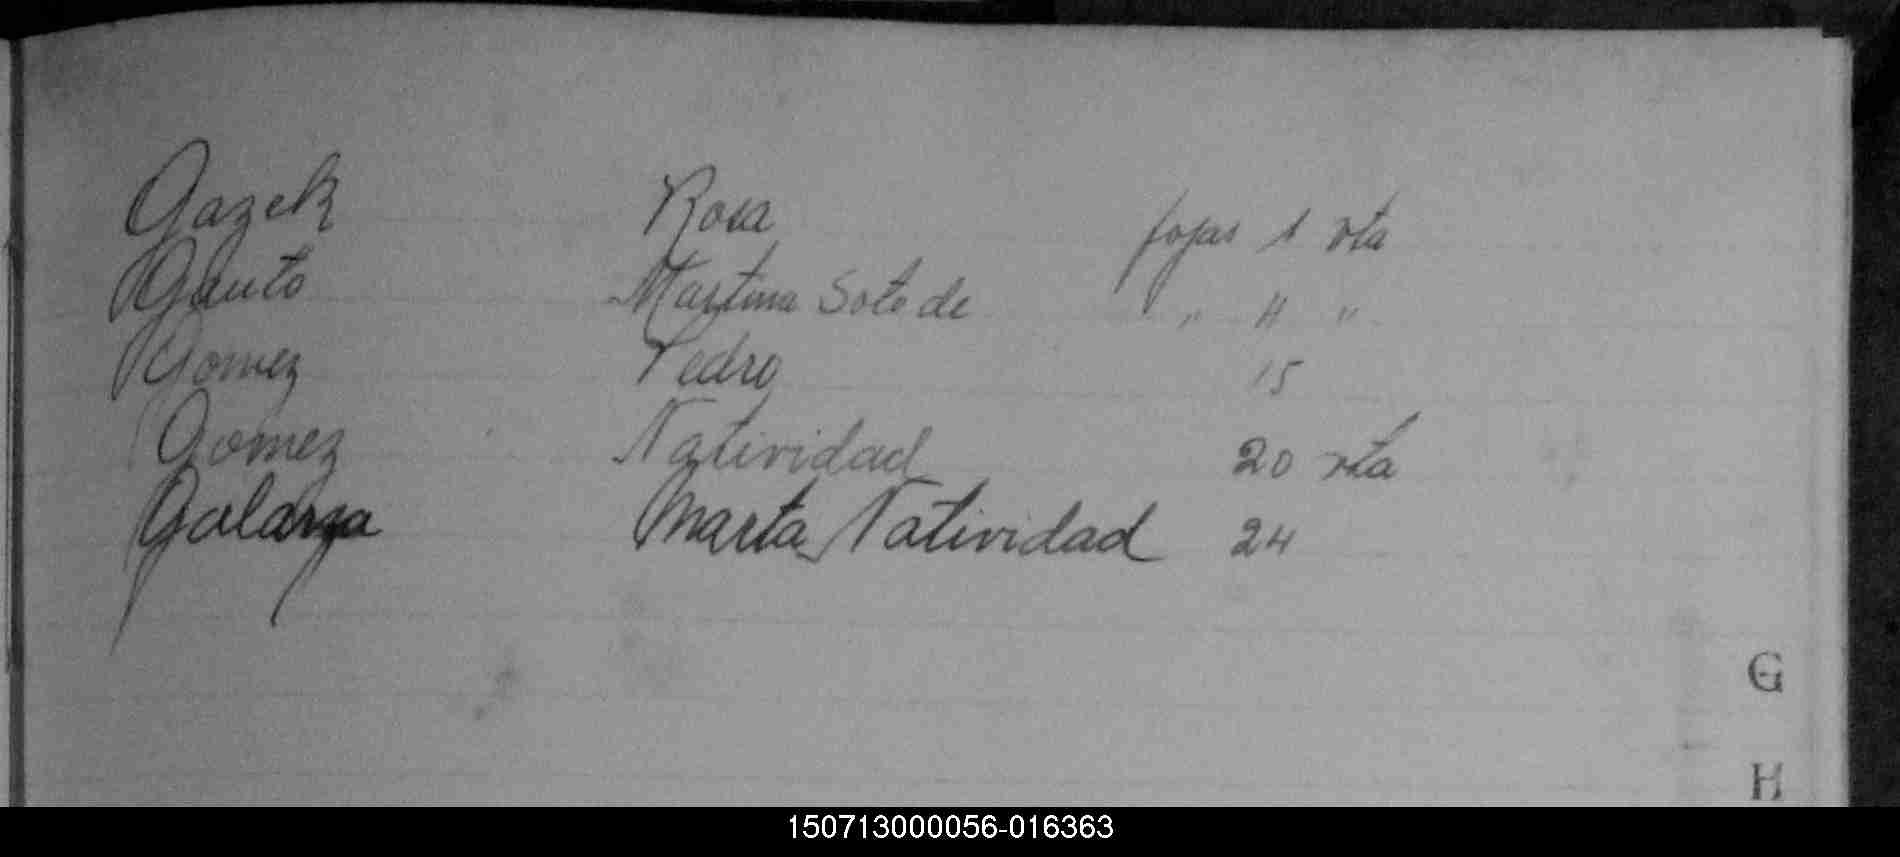 Gazek Rosa fojas 1 vta
Gauto Martina Soto de " 4 "
Gomez Pedro 15
Gomez Natividad 20 vta
Galarza Marta Natividad 24
G
H
150713000056-016363